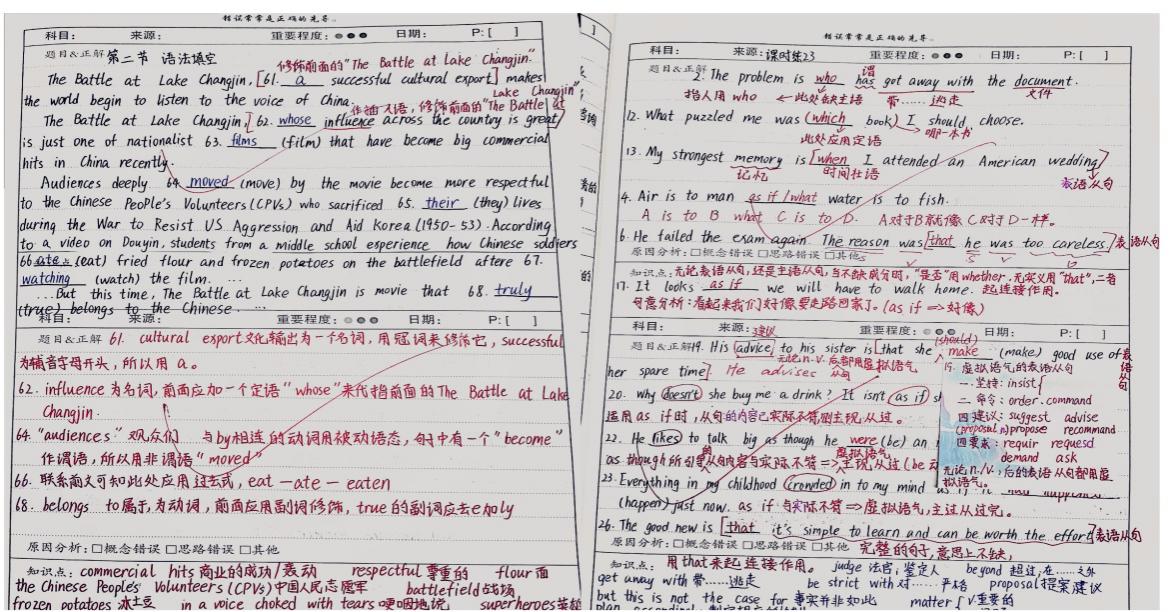 错误常常是正确的先导。
科目: 来源: 重要程度: 日期: P:[ ]
题目&正解 第二节 语法填空
修饰前面的"The Battle at Lake Changjin."
The Battle at Lake Changjin, [61. a successful cultural export] makes
the world begin to listen to the voice of China.
作插入语,修饰前面的"The Battle at Lake Changjin"
The Battle at Lake Changjin [62. whose influence across the country is great]
is just one of nationalist 63. films (film) that have become big commercial
hits in China recently.
Audiences deeply 64. moved (move) by the movie become more respectful
to the Chinese People's Volunteers (CPVs) who sacrificed 65. their (they) lives
during the War to Resist US Aggression and Aid Korea (1950-53). According
to a video on Douyin, students from a middle school experience how Chinese soldiers
66. ate (eat) fried flour and frozen potatoes on the battlefield aftere 67.
watching (watch) the film. ...
...But this time, The Battle at Lake Changjin is movie that 68. truly
(true) belongs to the Chinese.
科目: 来源: 重要程度: 日期: P:[ ]
题目&正解 61. cultural export 文化输出为一个名词,用冠词来修饰它, successful
为辅音字母开头,所以用 a。
62. influence 为名词,前面应加一个定语"whose"来代指前面的 The Battle at Lake
Changjin.
64. "audiences" 观众们 与by相连的动词用被动语态,句中有一个"become"
作谓语,所以用非谓语"moved"
66. 联系前文可知此处应用过去式, eat — ate — eaten
68. belongs to 属于,为动词,前面应用副词修饰, true的副词应去e加ly
原因分析: □概念错误 □思路错误 □其他
知识点: commercial hits 商业的成功/轰动 respectful 尊重的 flour 面
the Chinese People's Volunteers (CPVs) 中国人民志愿军 battlefield 战场
frozen potatoes 冻土豆 in a voice choked with tears 哽咽地说 superheroes
错误常常是正确的先导。
科目: 来源: 课时练23 重要程度: 日期: P:[ ]
题目&正解 2. The problem is who has got away with the document.
谓
指人用 who ← 此处缺主语 带……逃走 文件
12. What puzzled me was (which book) I should choose.
此处应用定语 哪一本书
13. My strongest memory is [when I attended an American wedding]
记忆 时间状语 表语从句
4. Air is to man as if / what water is to fish.
A is to B what C is to D. A对于B就像C对于D一样。
6. He failed the exam again. The reason was [that he was too careless.] 表语从句
原因分析: □概念错误 □思路错误 □其他
知识点: 无论表语从句,还是主语从句,当不缺成分时,"是否"用 whether, 无实义用"that",二者
17. It looks as if we will have to walk home. 起连接作用。
句意分析:看起来我们好像要走路回家了。(as if => 好像)
科目: 来源: 重要程度: 日期: P:[ ]
建议 (should)
题目&正解 19. His advice to his sister is [that she make (make) good use of
her spare time]. He advises 从句
无论n.v.后都用虚拟语气
表语从句
20. why doesn't she buy me a drink? It isn't as if s
运用 as if 时,从句的内容与实际不符则主现,从过。
22. He likes to talk big as though he were (be) an
虚拟语气
as though所引导的从句内容与实际不符 => 主现,从过 (be
23. Everything in my childhood crowded in to my mind as if it had happened
(happen) just now. as if 与实际不符 => 虚拟语气,主过从过完。
26. The good new is [that it's simple to learn and can be worth the effort] 表语从句
原因分析: □概念错误 □思路错误 □其他 完整的句子,意思上不缺,
知识点: 用that来起连接作用。 judge 法官,鉴定人 beyond 超过;在……之外
get away with 带……逃走 be strict with 对……严格 proposal 提案 建议
but this is not the case for 事实并非如此 matter { v 重要的
19. 虚拟语气的表语从句
一坚持: insist
二命令: order . command
四建议: suggest advise
(proposal n) propose recommend
四要求: requir requesd
demand ask
无论n./v.后的表语从句都用虚
拟语气。